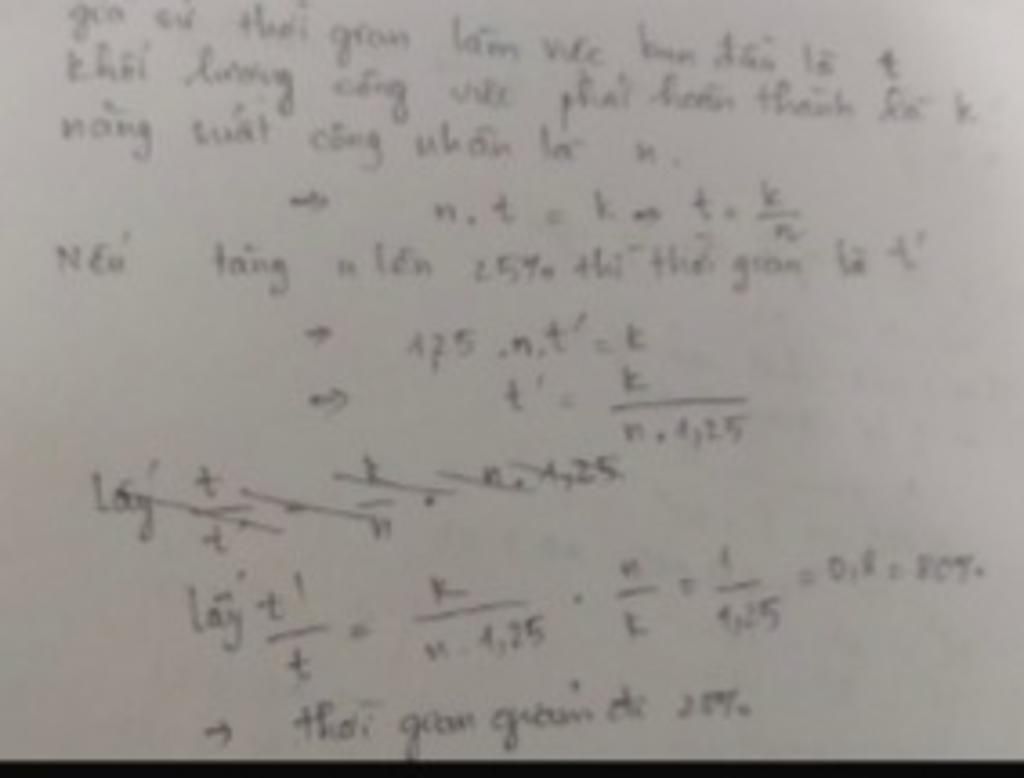 giả sử thời gian làm việc ban đầu là t
khối lượng công việc phải hoàn thành là k
năng suất công nhân là n.
→ n. t = k → t = k/n
Nếu tăng n lên 25% thì thời gian là t'
→ 1,25 .n.t' = k
→ t' = k/(n.1,25)
lấy t/t' = k/n . n.1,25
lấy t'/t = k/(n.1,25) . n/k = 1/1,25 = 0,8 = 80%.
→ thời gian giảm đi 20%.